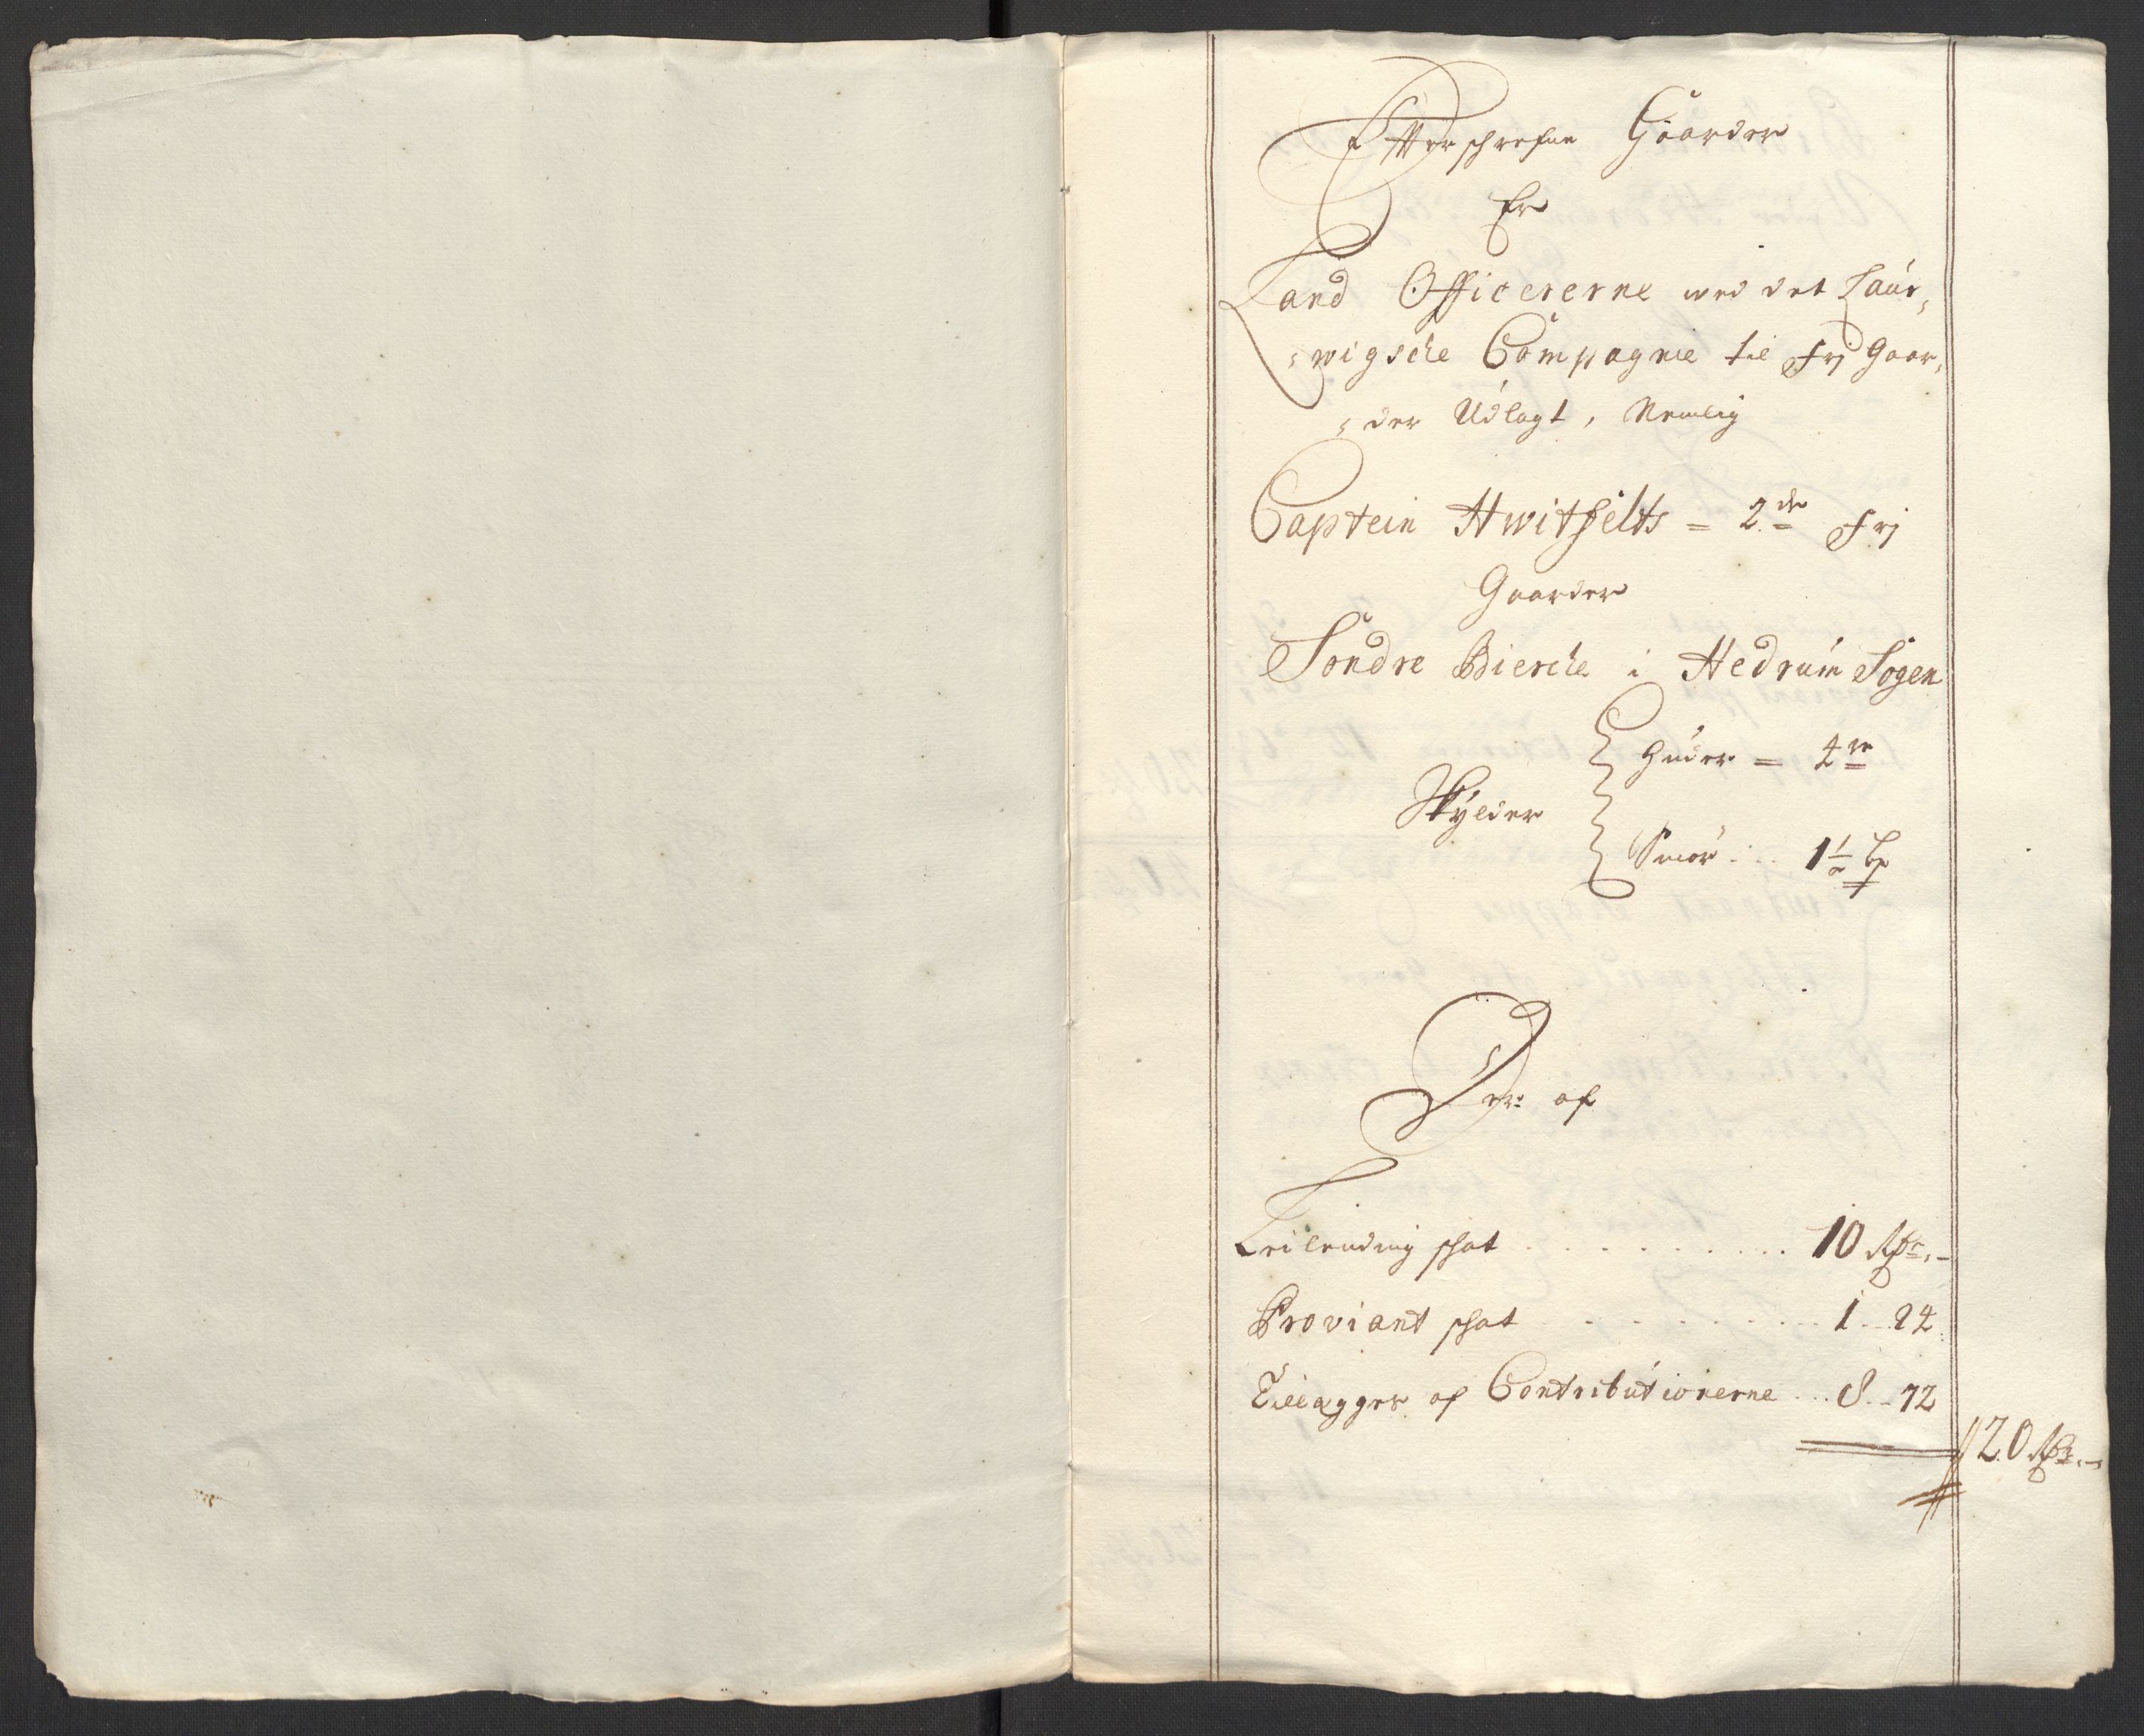 Efterschrefne Gaarder
Er
Land Officererne wed det Laur,
,wigsche Compagnie til frj Gaar,
,der Udlagt, Nemlig
Captein Hwitfelts = 2de frj
Gaarder
Sondre Bierche i Hedrum Sogen
Huder = 4re
Skylder
Smör ... 1½ Lp
Der af
Leilending schat . . . . . . . . . . 10 Rdr. -
Proviant schat . . . . . . . . . 1 .. 24
Tillegges af Contributionerne .. 8 .. 72
20 Rdr. -